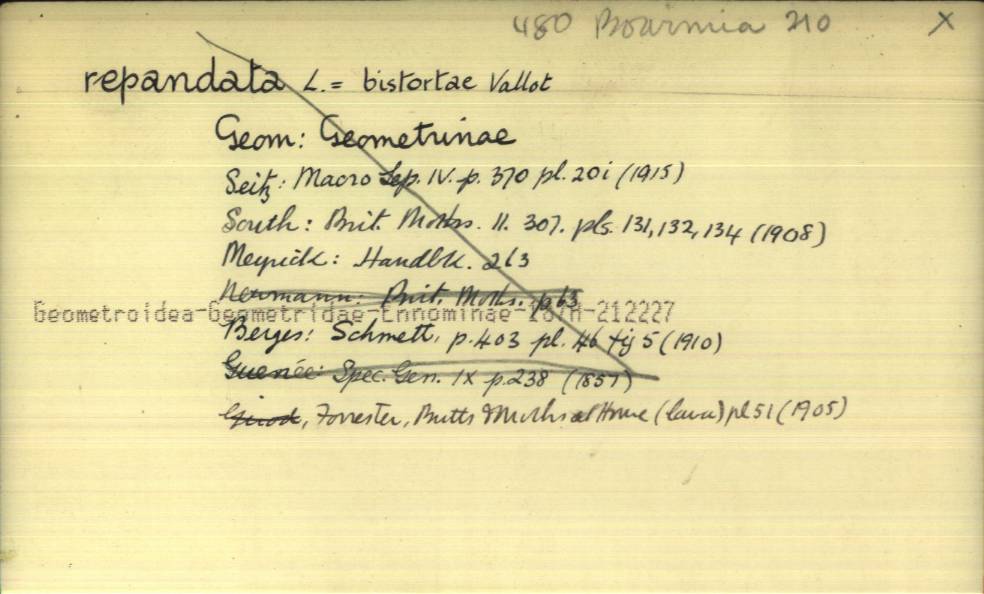 480 Boarmia 210 X
repandata L. = bistortae Vallot
Geom: Geometrinae
Seitz: Macro Lep. IV. p. 370 pl. 20i (1915)
South: Brit. Moths. II. 307. pls. 131, 132, 134 (1908)
Meyrick: Handbk. 263
Newmann: Brit. Moths. p 63
Geometroidea-Geometridae-Ennominae
-212227
Berges: Schmett. p. 403 pl. 46 fig 5 (1910)
Guenée: Spec. Gen. IX p. 238 (1857)
Forrester, Butts & Moths at Home (larva) pl 51 (1905)